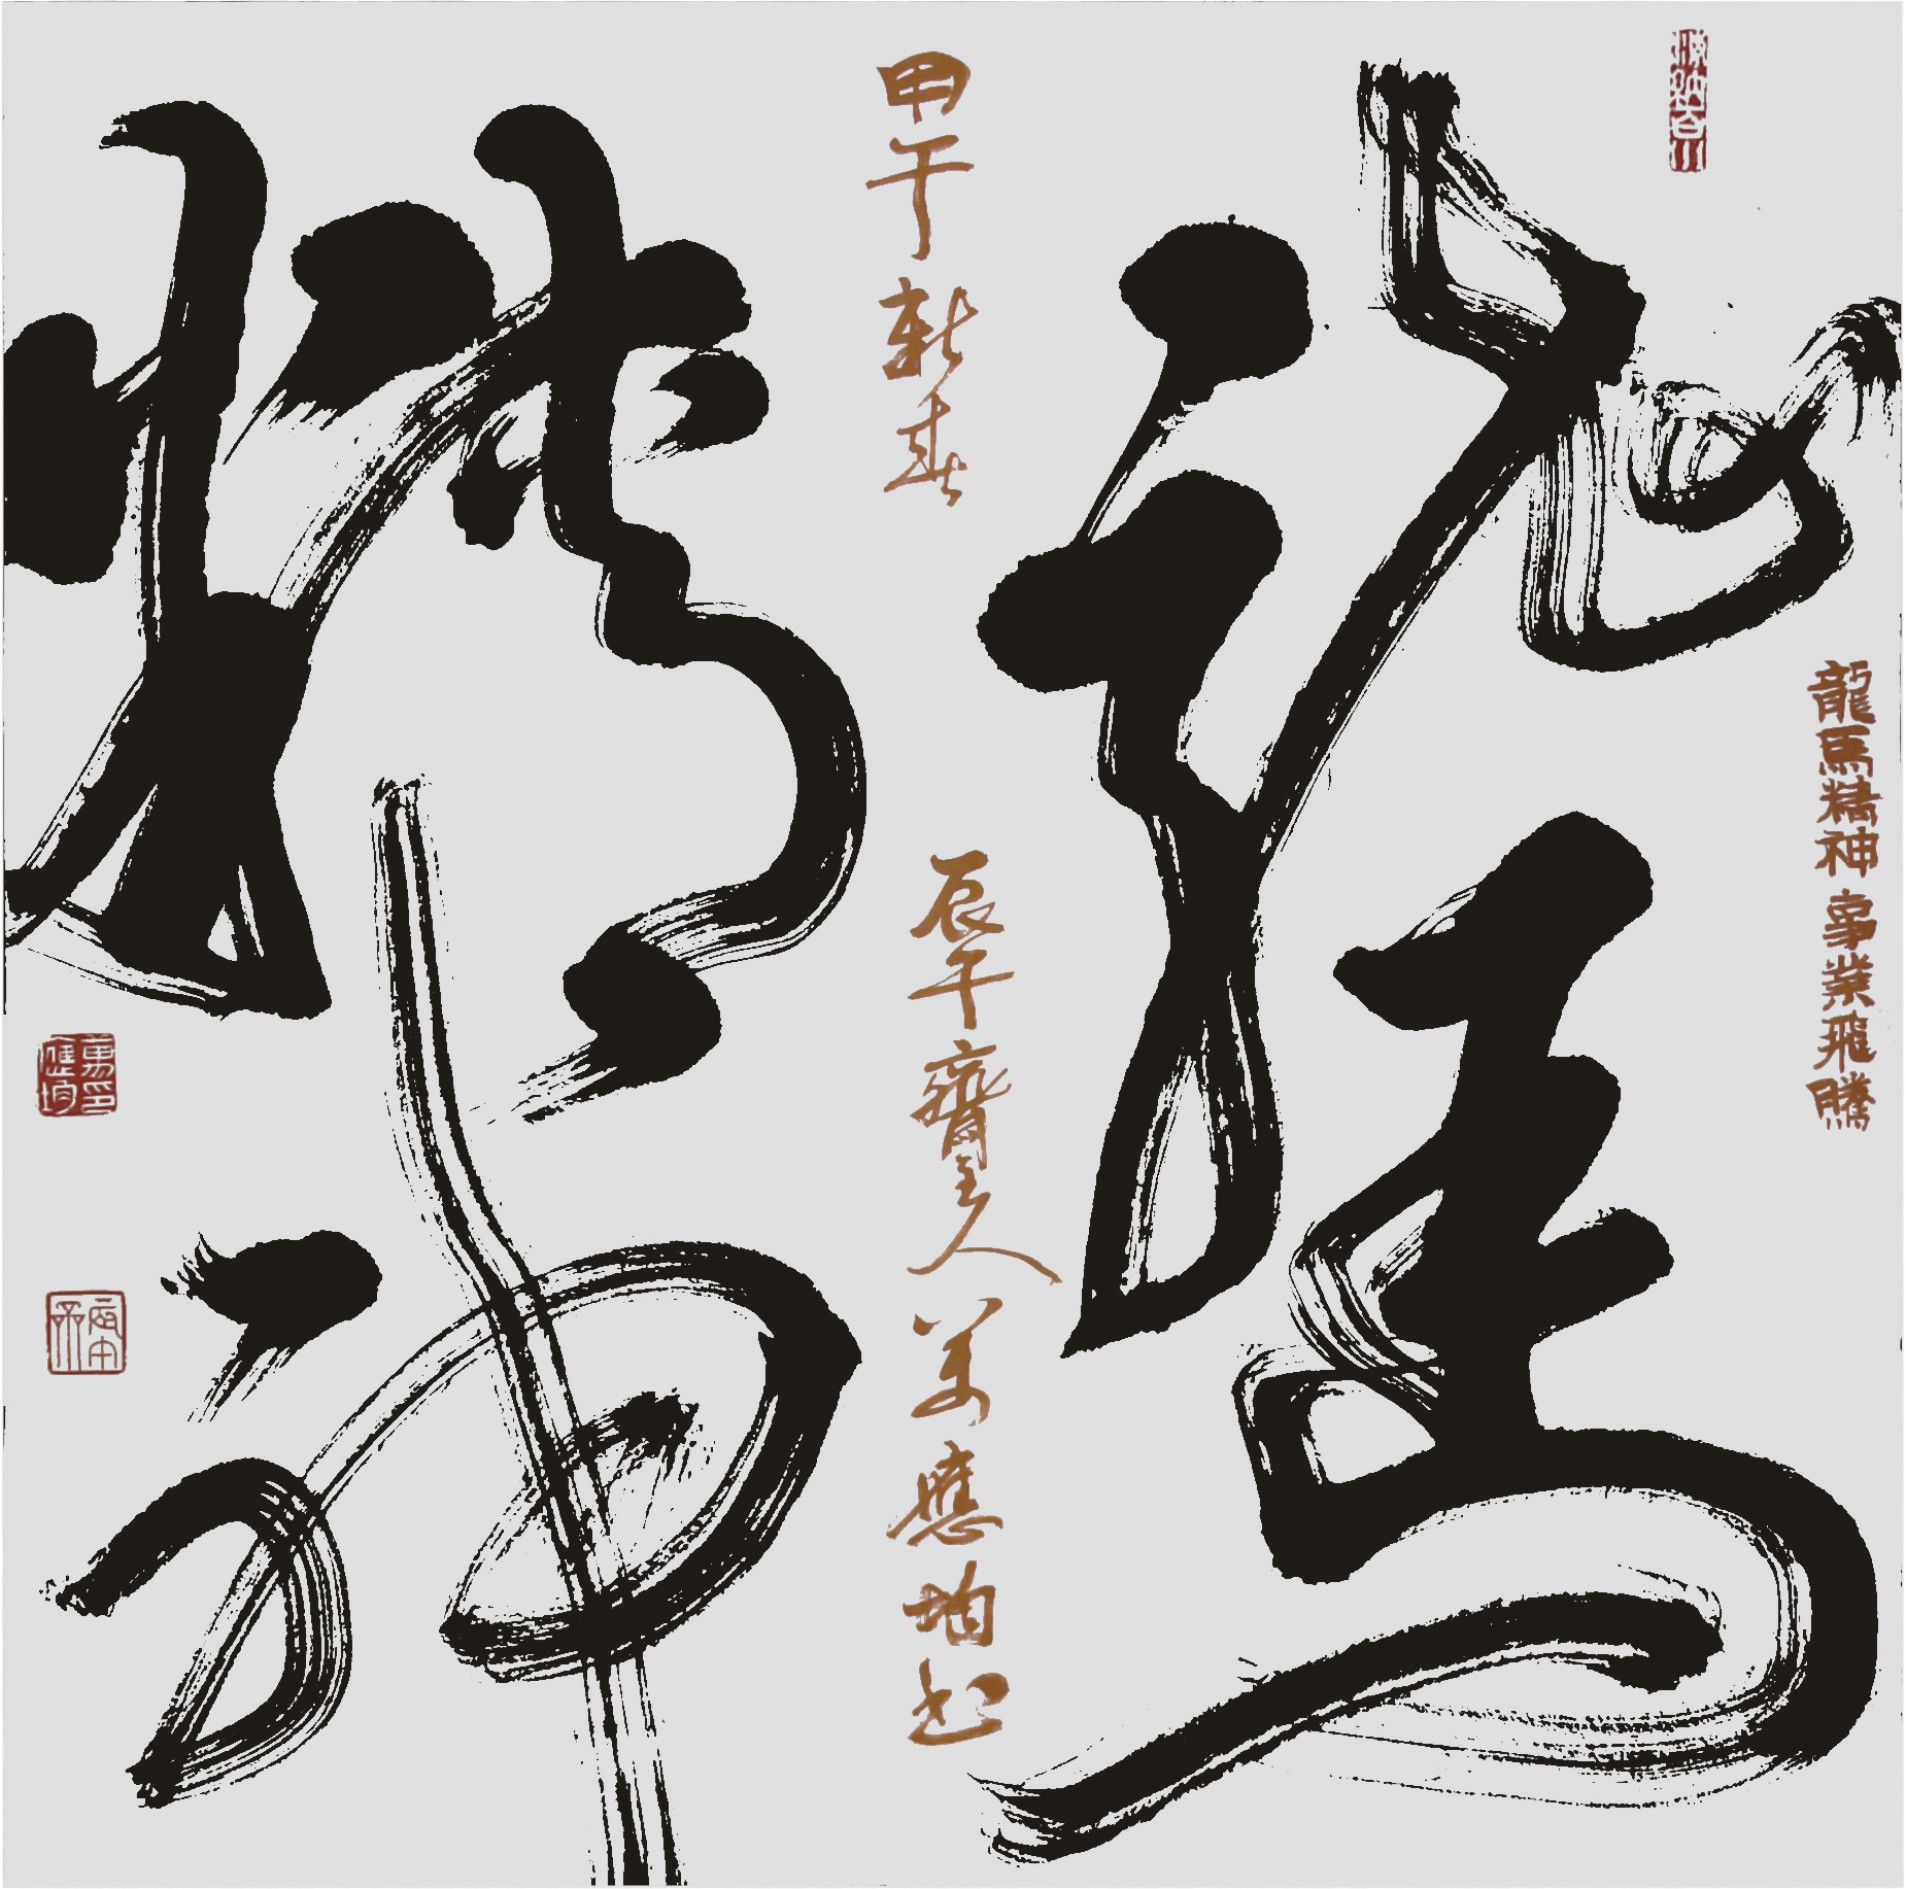 龍馬
精神
龍馬精神 事業飛騰
甲午新春
辰午齋主人 萬應均書